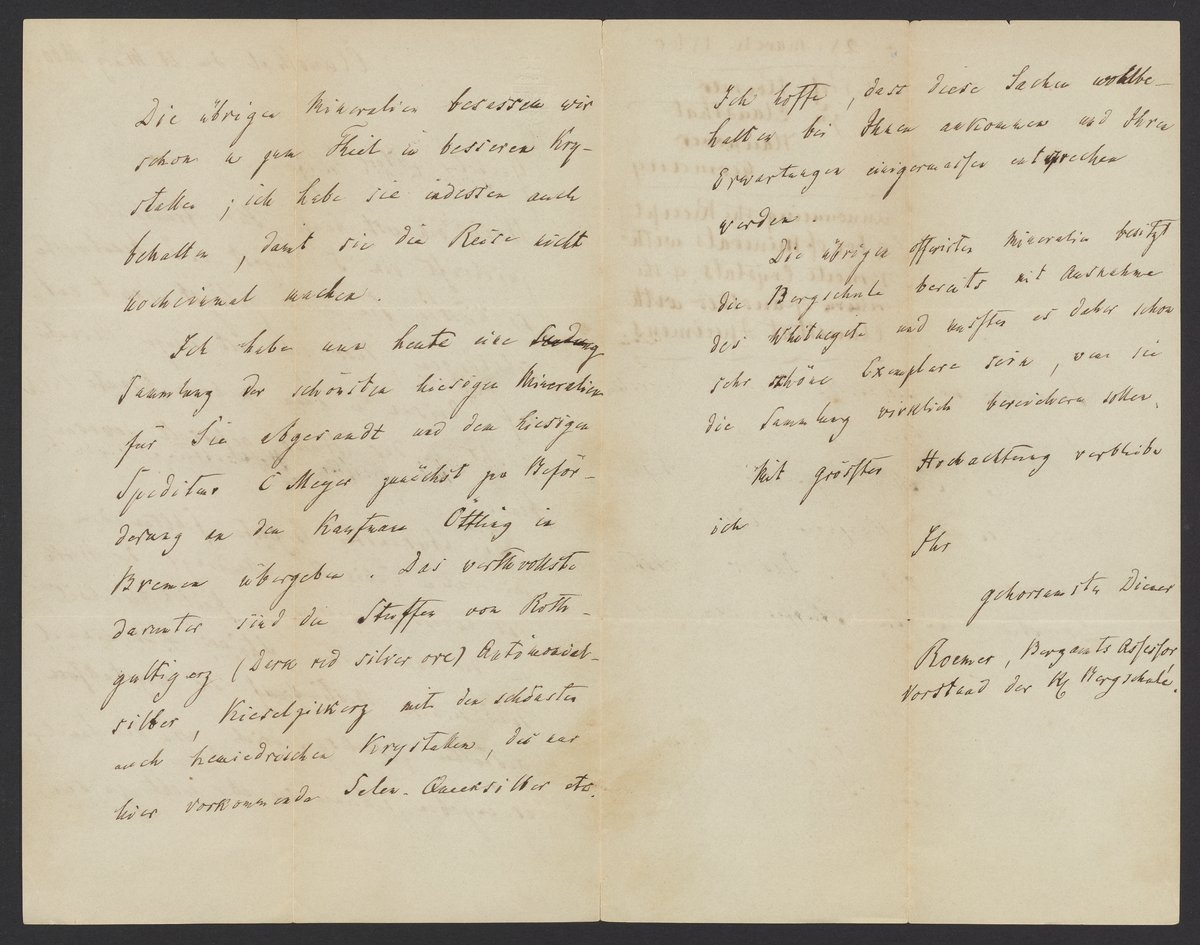 Die übrigen Mineralien besassen wir
schon u zum Theil in besseren Kry-
stallen; ich habe sie indessen auch
behalten, damit sie die Reise nicht
nocheinmal machen.
Ich habe nun heute eine Sendung
Sammlung der schönsten hiesigen Mineralien
für Sie abgesandt und dem hiesigen
Spediteur C Meyer zunächst zu Beför-
derung an den Kaufmann Öttling in
Bremen übergeben. Das werthvollste
darunter sind die Stuffen von Roth-
gultigerz (Dark red silver ore) Antimonial-
silber, Kieselzinkerz mit den schönsten
auch hemiedrischen Krystallen, das nur
hier vorkommende Selen-Quecksilber etc.
Ich hoffe, dass diese Sachen wohlbe-
halten bei Ihnen ankommen und Ihren
Erwartungen einigermassen entsprechen
werden.
Die übrigen offerirten Mineralien besitzt
die Bergschule bereits mit Ausnahme
des Whitneyits und müssten es daher schon
sehr schöne Exemplare sein, wenn sie
die Sammlung wirklich bereichern sollen.
Mit grösster Hochachtung verbleibe
ich
Ihr
gehorsamster Diener
Roemer, Bergamts Assessor
Vorstand der Kg Bergschule.